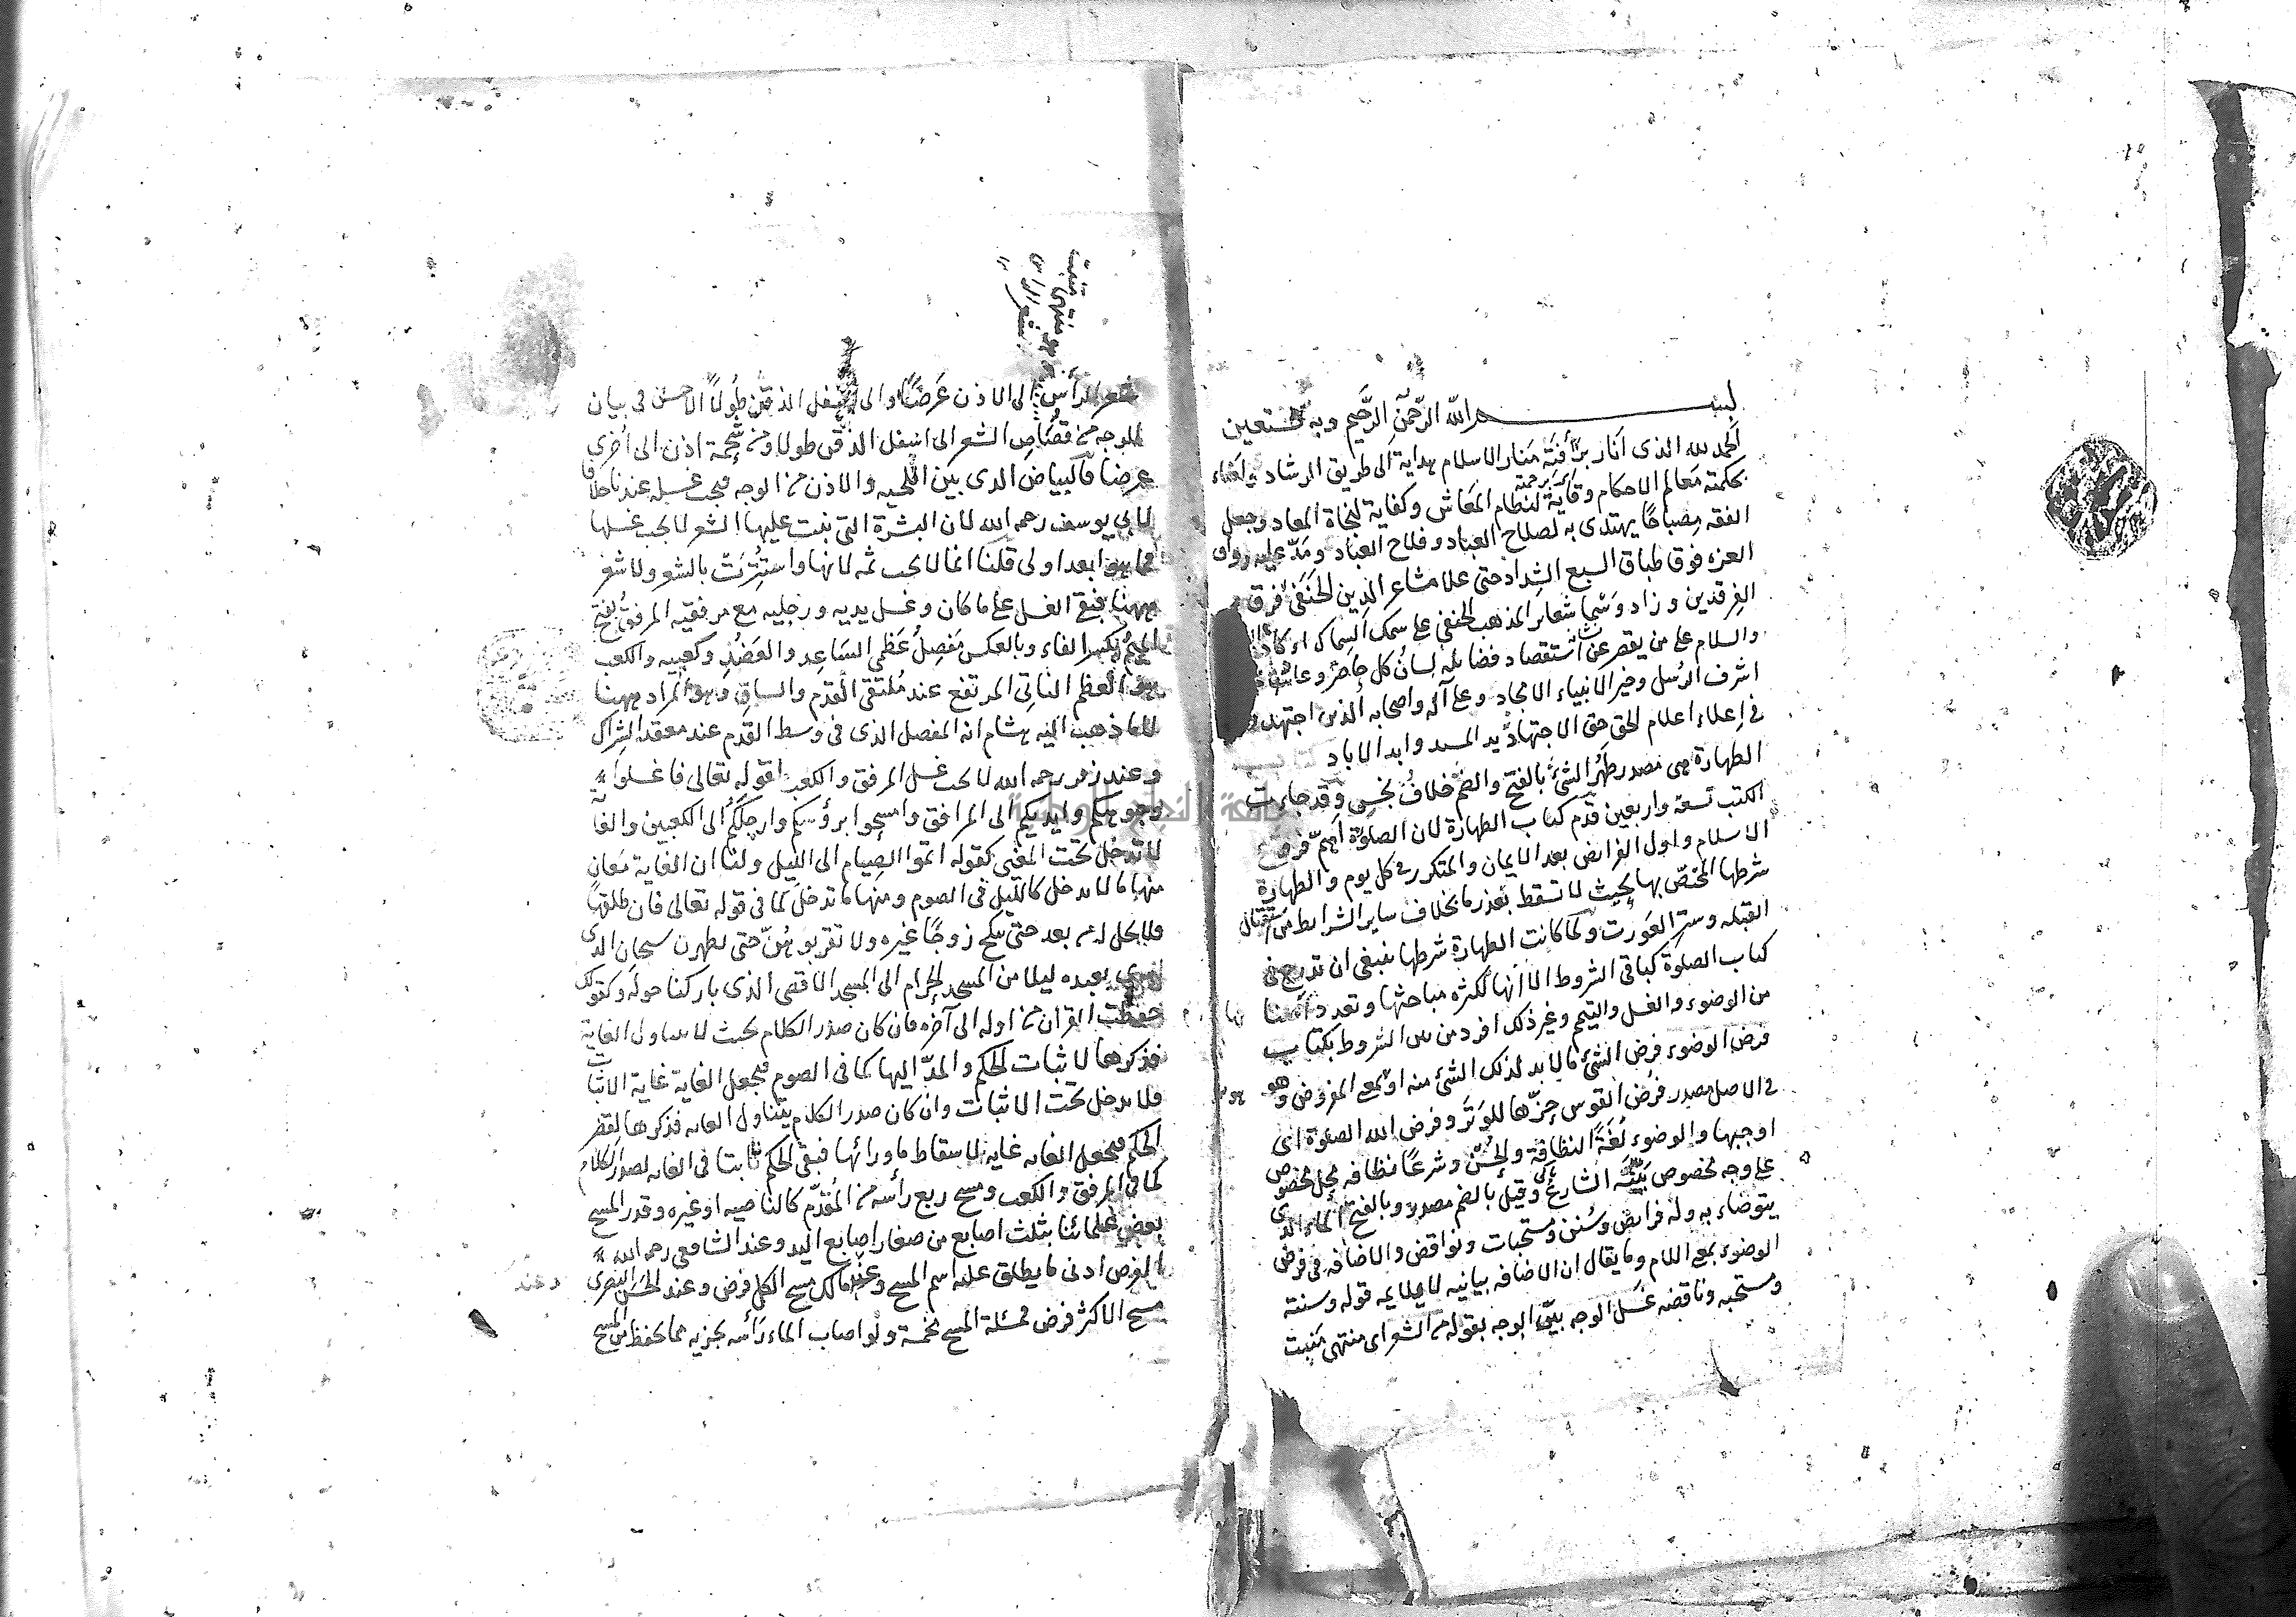 بسم الله الرحمن الرحيم وبه نستعين
الحمد لله الذي انار برأفته منار الاسلام هداية الى طريق الرشاد
بحكمته معالم الاحكام وقاية لنظام المعاش وكفاية لنجاة المعاد وجعل
الفقه مصباحًا يهتدى به لصلاح العباد وفلاح العباد ومدّ عليه رواق
العزه فوق طباق السبع الشداد حتى علا مشاعر الدين الحنفي فرق
الفرقدين وزاد وسَمى شعاير المذهب الحنفي على سمك السماك او كاد
والسلام على من يقصر عن استقصاء فضائله لسان كل حاضر
اشرف الرسل وخير الانبياء الامجاد وعلى آله واصحابه الذين اجتهدوا
في اعلاء اعلام الحق حتى الاجتهاد وابد الاباد
الطهارة هي مصدر طهر الشئ بالفتح والضم خلاف نجس وقد جاءت
الكتب تسعة واربعين قدّم كتاب الطهارة لان الصلوة اهمّ فروع
الاسلام واول الفرائض بعد الايمان والمتكرر في كل يوم والطهارة
شرطها المختصّ بها بحيث لا تسقط بعذر ما بخلاف ساير الشرايط من استقبال
القبله وستر العورت ولما كانت الطهارة شرطها ينبغي ان تدرج في
كتاب الصلوة كباقي الشروط الا انها لكثره مباحثها وتعدد اقسامها
من الوضوء والغسل والتيمم وغير ذلك افردت من بين الشروط بكتاب
فرض الوضوء فرض الشئ ما لا بد لذلك الشئ منه او بمعنى المفروض وهو
في الاصل مصدر فرض القوس حزّها للوتر وفرض الله الصلوة اى
اوجبها والوضوء لغةً النظافة والحُسن وشرعًا نظافه محل مخصوص
على وجه مخصوص بيّنه الشارع وقيل بالضم مصدر وبالفتح الماء الذي
يتوضاء به وله فرايض وسنن ومستحبات ونواقض والاضافه في فرض
الوضوء بمعنى اللام وما يقال ان الاضافه بيانيه لا يلايمه قوله وسنته
ومستحبه وناقضه غسل الوجه بيّن الوجه بقوله من الشعر اى منتهى منبت
منتهى منبت
شعر الراس
شعر الرأس الى الاذن عرضًا والى اسفل الذقن طولًا الاحسن في بيان
الوجه من قصاص الشعر الى اسفل الذقن طولا ومن شحمة اذن الى اخرى
عرضا فالبياض الذي بين اللحيه والاذن من الوجه فيجب غسله عندنا خلافا
لابي يوسف رحمه الله لان البشرة التي نبت عليها الشعر لا يجب غسلها
فما هو ابعد اولى قلنا انما لا يجب ثمه لانها استترت بالشعر ولا شعر
ههنا فبقي الغسل على ما كان وغسل يديه ورجليه مع مرفقيه المرفق بفتح
الميم وكسر الفاء وبالعكس مفصل عظمي الساعد والعضد وكعبيه والكعب
هو العظم الناتي المرتفع عند ملتقى القدم والساق وهو المراد ههنا
لا ما ذهب اليه هشام انه المفصل الذي في وسط القدم عند معقد الشراك
وعند زفر رحمه الله لا يجب غسل المرفق والكعب لقوله تعالى فاغسلوا
وجوهكم وايديكم الى المرافق وامسحوا برؤسكم وارجلكم الى الكعبين
لا تدخل تحت المغيى كقوله اتموا الصيام الى الليل ولنا ان الغاية معان
منها ما لا يدخل كالليل في الصوم ومنها ما تدخل كما في قوله تعالى فان طلقها
فلا تحل له من بعد حتى تنكح زوجًا غيره ولا تقربوهنّ حتى يطهرن سبحان الذي
اسرى بعبده ليلا من المسجد الحرام الى المسجد الاقصى الذي باركنا حوله وكقولك
حفظت القران من اوله الى آخره فان كان صدر الكلام بحيث لا يتناول الغاية
فذكرها لاثبات الحكم والمدّ اليها كما في الصوم فيجعل الغاية غاية الاثبات
فلا يدخل تحت الاثبات وان كان صدر الكلام يتناول الغايه فذكرها لقصر
الحكم فيجعل الغايه غايه لاسقاط ما ورائها فبقى الحكم ثابتا في الغايه لصدر الكلام
كما في المرفق والكعب ومسح ربع رأسه من المقدّم كالناصيه او غيره وقدر المسح
بعض علمائنا بثلث اصابع من صغار اصابع اليد وعند الشافعي رحمه الله
الفرض ادنى ما يطلق عليه اسم المسح وعند مالك مسح الكل فرض وعند الحسن البصري
مسح الاكثر فرض فمسئلة المسح مخمسة ولو اصاب الماء رأسه يجزيه
وعند
جامعة النجاح الوطنية